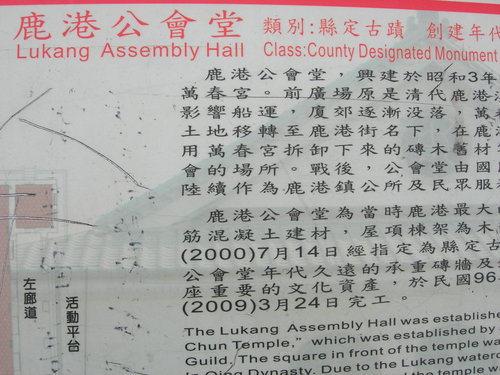 鹿港公會堂 類別:縣定古蹟 創建年代
Lukang Assembly Hall Class:County Designated Monument
鹿港公會堂，興建於昭和3年
萬春宮。前廣場原是清代鹿港
影響船運，廈郊逐漸没落，萬
土地移轉至鹿港街名下，在鹿
用萬春宮拆卸下來的磚木舊材
會的場所。戰後，公會堂由國
陸續作為鹿港鎮公所及民眾服
鹿港公會堂為當時鹿港最大
筋混凝土建材，屋頂棟架為木
(2000)7月14日經指定為縣定古
公會堂年代久遠的承重磚牆及
座重要的文化資產，於民國96
(2009)3月24日完工。
左廊道
活動平台
The Lukang Assembly Hall was establishe
Chun Temple," which was established by
Guild. The square in front of the temple wa
in Qing Dynasty. Due to the Lukang water